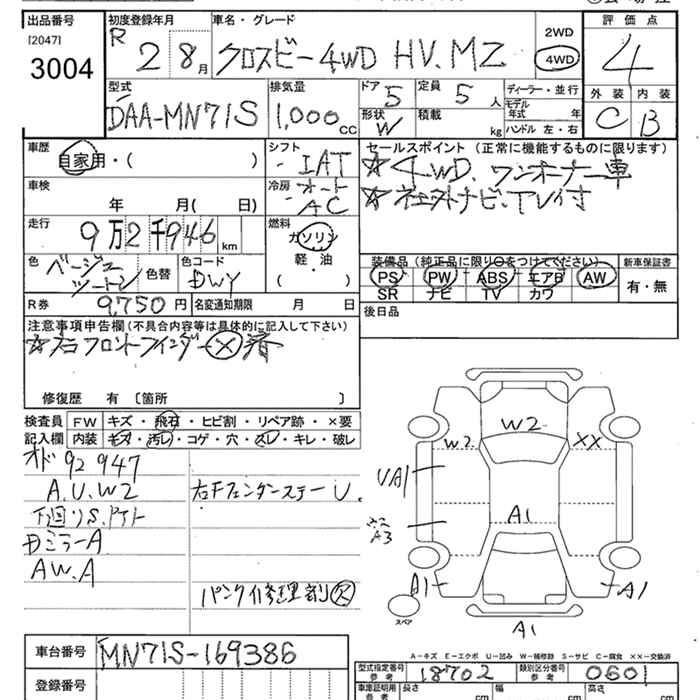 出品番号
[2047]
3004
初度登録年月
R 2 8月
車名・グレード
クロスビー4WD HV.MZ
2WD
4WD
評価点
4
外装 内装
C B
型式
DAA-MN71S
排気量
1,000cc
ドア 5
定員 5人
形状 W
積載 kg
ディーラー・並行
モデル年式 年式
ハンドル 左・右
車歴
自家用・( )
シフト
IAT
セールスポイント(正常に機能するものに限ります)
☆4WD、ワンオーナー車
車検
年 月( 日)
冷房
オート
AC
走行
9万2千946km
燃料
ガソリン
軽・油
( )
色
ベージュ
ツートン
色替
色コード
DWY
装備品(純正品に限り○をつけてください)
PS PW ABS エアB AW
SR ナビ TV カワ
新車保証書
有・無
R券 9,750円
名変通知期限 月 日
後日品
注意事項申告欄(不具合内容等は具体的に記入して下さい)
☆右フロントフェンダー×済
修復歴 有 〔箇所 〕
検査員
記入欄
FW キズ・飛石・ヒビ割・リペア跡・×要
内装 キズ・汚レ・コゲ・穴・スレ・キレ・破レ
オド 92947
A.U.W2
下廻りS.
右Fフェンダーステー U.
ミラーA
AW.A
パンク修理剤
W2
W2
XX
UA1
A3
A1
A1
A1
A1
スペア
A-キズ E-エクボ U-凹み W-補修跡 S-サビ C-腐食 ××-交換済
車台番号
MN71S-169386
登録番号
型式指定番号 参考
18702
類別区分番号 参考
0601
車庫証明用 参考
長さ cm
幅 cm
高さ cm